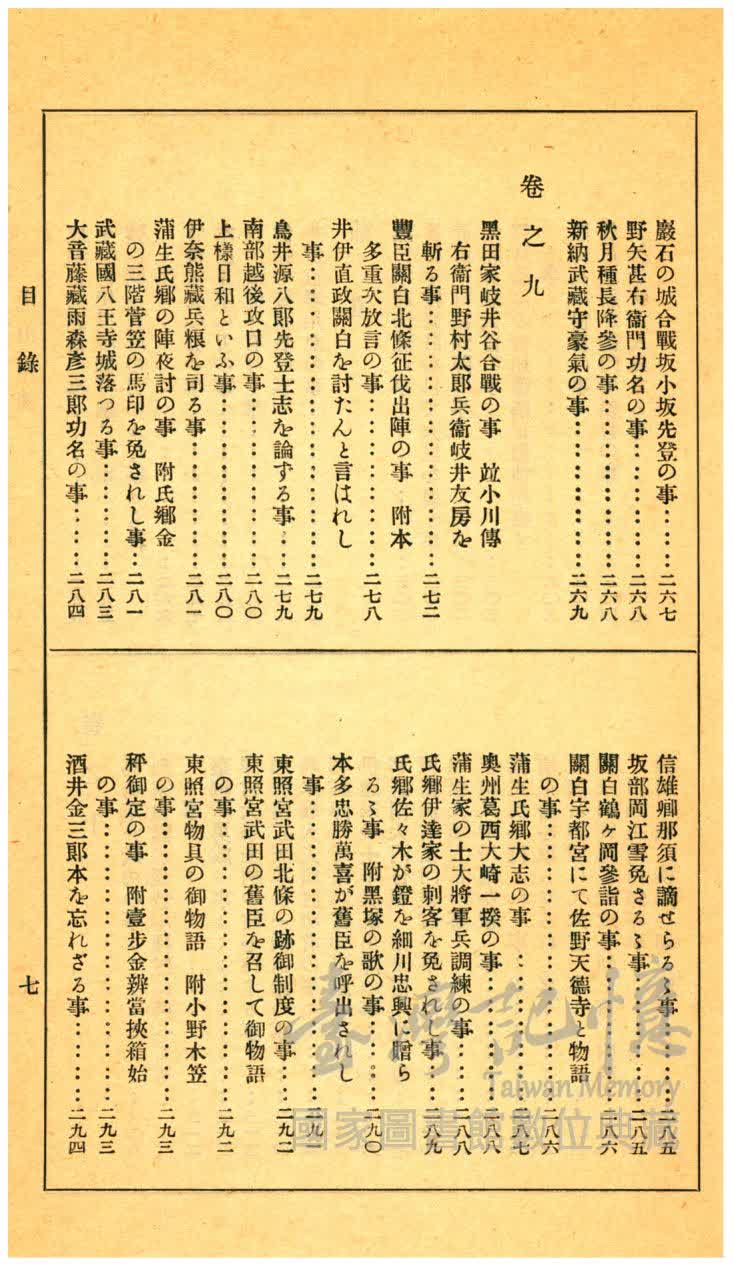 巖石の城合戰坂小坂先登の事……二六七
野矢甚右衞門功名の事…………二六八
秋月種長降參の事………………二六八
新納武藏守豪氣の事……………二六九
卷之九
黑田家岐井谷合戰の事　竝小川傳
右衞門野村太郎兵衞岐井友房を
斬る事…………………………二七二
豐臣關白北條征伐出陣の事　附本
多重次放言の事………………二七八
井伊直政關白を討たんと言はれし
事………………………………二七九
鳥井源八郎先登士志を論ずる事…二七九
南部越後攻口の事………………二八〇
上樣日和といふ事………………二八〇
伊奈熊藏兵粮を司る事…………二八一
蒲生氏鄕の陣夜討の事　附氏鄕金
の三階菅笠の馬印を免されし事…二八一
武藏國八王寺城落つる事………二八三
大音藤藏雨森彥三郎功名の事……二八四
信雄卿那須に謫せらるゝ事………二八五
坂部岡江雪免さるゝ事…………二八五
關白鶴ヶ岡參詣の事……………二八六
關白宇都宮にて佐野天德寺と物語
の事……………………………二八六
蒲生氏鄕大志の事　……………二八七
奧州葛西大崎一揆の事…………二八八
蒲生家の士大將軍兵調練の事……二八八
氏鄕伊達家の刺客を免されし事…二八九
氏鄕佐々木が鐙を細川忠興に贈ら
るゝ事　附黑塚の歌の事………二九〇
本多忠勝萬喜が舊臣を呼出されし
事………………………………二九一
東照宮武田北條の跡御制度の事…二九二
東照宮武田の舊臣を召して御物語
の事……………………………二九二
東照宮物具の御物語　附小野木笠
の事……………………………二九三
秤御定の事　附壹步金辨當挾箱始
の事……………………………二九三
酒井金三郎本を忘れざる事………二九四
目錄
七
臺灣記憶
Taiwan Memory
國家圖書館數位典藏